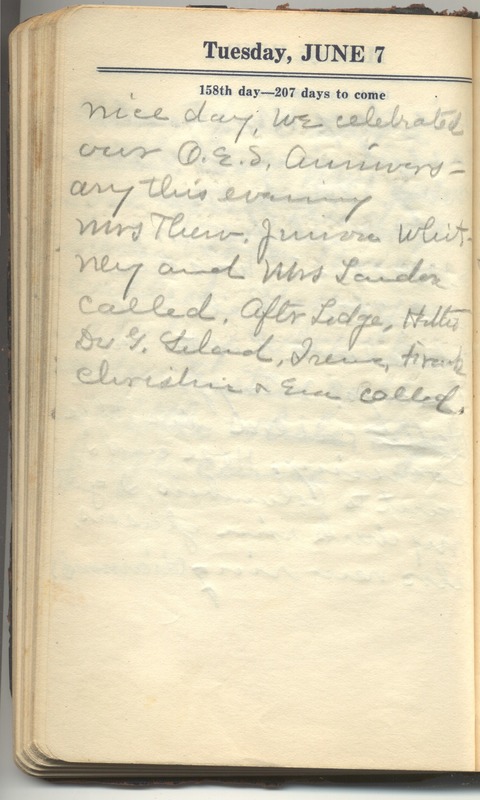 Tuesday, JUNE 7
158th day—207 days to come
nice day, we celebrated
our O.E.S. Annivers-
ary this evening
Mrs Whit-
ney and Mrs
called. Aftr Lodge, Hattie
Dr G. Leland, Irene, Frank
Christine & Eva called.